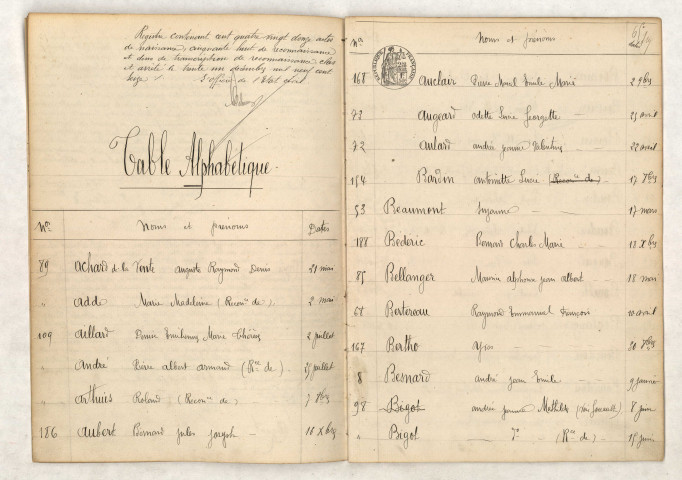 Registre contenant cent quatre vingt douze actes
de naissance, cinquante huit de reconnaissance
et deux de transcription de reconnaissance, clos
et arrêté le trente un décembre mil neuf cent
seize
L'officier de l'Etat civil
Table Alphabétique.
Nos Noms et prénoms Dates
89 Achard de la Vente Auguste Raymond Denis 21 mai
" Adde Marie Madeleine (Reconce de) 2 mai
109 Allard Denise Marie Thérèse 2 juillet
" André Pierre Albert Armand (Rce de) 27 juillet
" Arthuis Roland (Reconce de) 7 7bre
186 Aubert Bernard Jules Joseph 16 Xbre
Nos Noms et prénoms
RÉPUBLIQUE FRANÇAISE
168 Auclair Pierre Marcel Emile Marie 2 9bre
72 Augeard Odette Georgette 25 avril
72 Aulard André Jeanne Valentine 22 avril
154 Bardin Antoinette Lucie (Reconce de) 17 7bre
53 Beaumont Suzanne 17 mars
188 Bédéric Bernard Charles Marie 12 Xbre
85 Bellanger Maurice Alphonse Jean Albert 18 mai
68 Bertereau Raymond Emmanuel François 10 avril
167 Bertho Yves
8 Besnard André Jean Emile 9 janvier
98 Bigot Andrée Jeanne Mathilde 8 juin
" Bigot do (Rce de) 15 juin